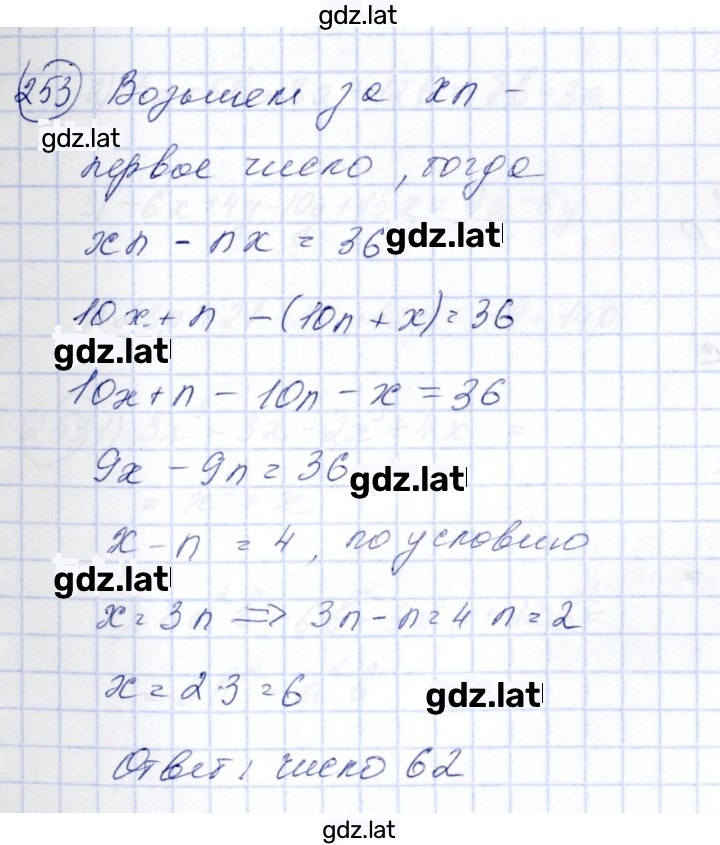 gdz.lat
253 Возьмем за xn -
gdz.lat
первое число, тогда
xn - nx = 36 gdz.lat
10x + n - (10n + x) = 36
gdz.lat
10x + n - 10n - x = 36
9x - 9n = 36 gdz.lat
x - n = 4, по условию
gdz.lat
x = 3n => 3n - n = 4 n = 2
x = 2·3 = 6 gdz.lat
Ответ: число 62
gdz.lat